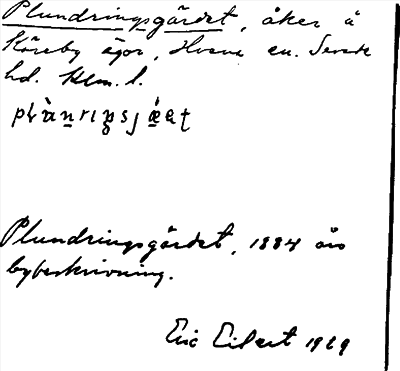 Plundringsgärdet, åker å
Köreby ägor, en. Sevede
hd. Klm. l.
Plundringsgärdet, 1884 års
bybeskrivning.
Eric Eilert 1929